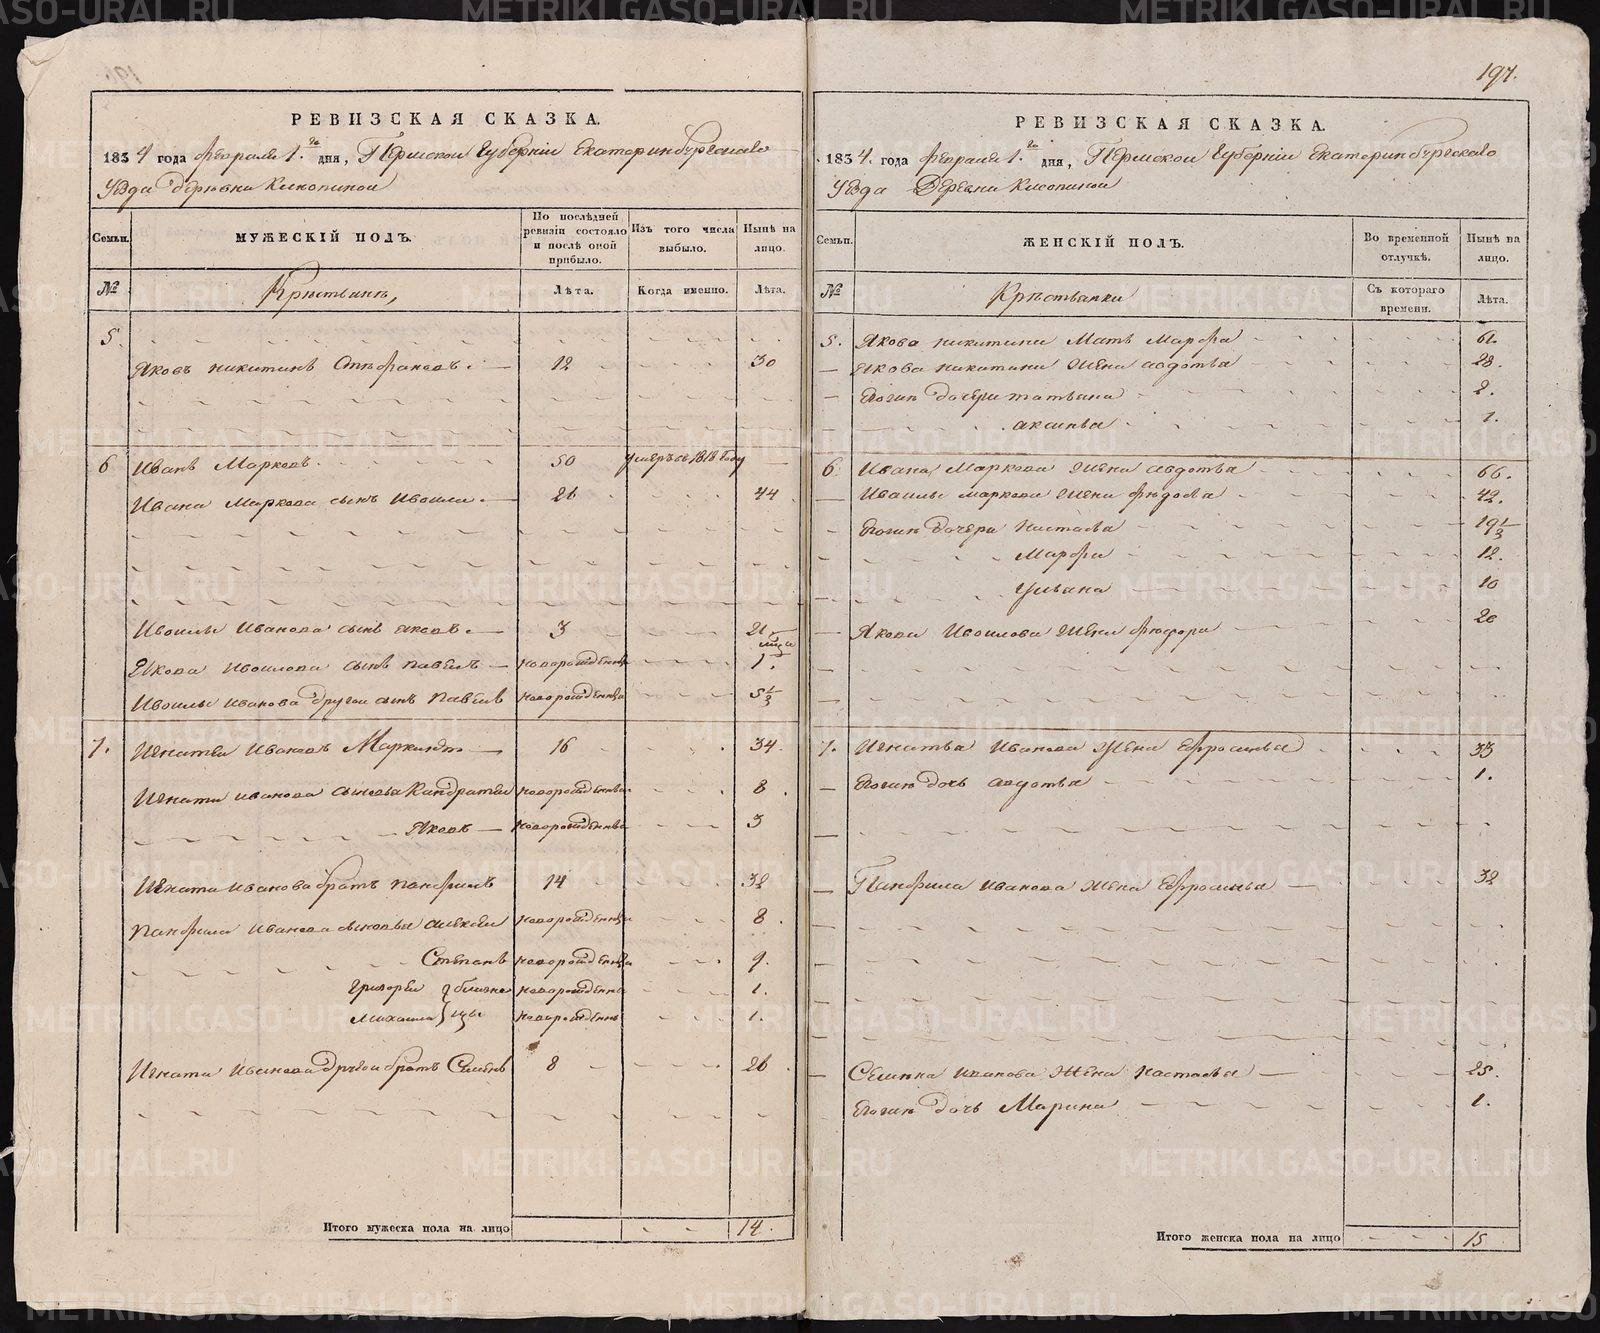 РЕВИЗСКАЯ СКАЗКА.
1834 года февраля 1.го дня, Пермской Губерніи Екатеринбургскаго
Уѣзда деревни
Семьи.
МУЖЕСКІЙ ПОЛЪ.
По послѣдней ревизіи состояло и послѣ оной прибыло.
Изъ того числа выбыло.
Нынѣ на лицо.
№
Крестьянѣ,
Лѣта.
Когда именно.
Лѣта.
5.
Яковъ никитинъ 12 30
6 Иванъ Марковъ 50 умеръ въ 1818 году
Ивана Маркова сынъ 26 44
Иванова сынъ яковъ 3 21
Якова сынъ павелъ новорожденны 1
Иванова другой сынъ павелъ новорожденны 5 1/3
7. Игнатей Ивановъ 16 34
Игнати иванова сыновья Кандратеи новорожденны 8
Яковъ новорожденны 3
Игнати иванова братъ панфилъ 14 32
панфила иванова сыновья алексеи новорожденны 8
Степанъ новорожденны 9
Григореи близне новорожденны 1.
Михаила цы новорожденны 1.
Игнати Иванова другои братъ Семенъ 8 26
Итого мужеска пола на лицо 14.
197.
РЕВИЗСКАЯ СКАЗКА.
1834. года февраля 1.го дня, Пермской Губерніи Екатеринбургскаго
Уѣзда Деревни
Семьи.
ЖЕНСКІЙ ПОЛЪ.
Во временной отлучкѣ.
Нынѣ на лицо.
№
Крѣстьянки
Съ котораго времени.
Лѣта.
5. Якова никитина Мать Марфа 61.
Якова никитина Жена авдотья 28.
Егожъ дочери татьяна 2.
аксинья 1.
6. Ивана Маркова жена авдотья 66.
жена 42.
Егожъ дочери настасья 19 1/3
Марфа 12.
Ульяна 10
Якова жена 20
7. Игнатья Иванова Жена Ефросинья 33
Егожъ дочь авдотья 1.
Панфила иванова жена Ефросинья 32
Семена иванова Жена настасья 25.
Егожъ дочь Марина 1.
Итого женска пола на лицо 15
METRIKI.GASO-URAL.RU